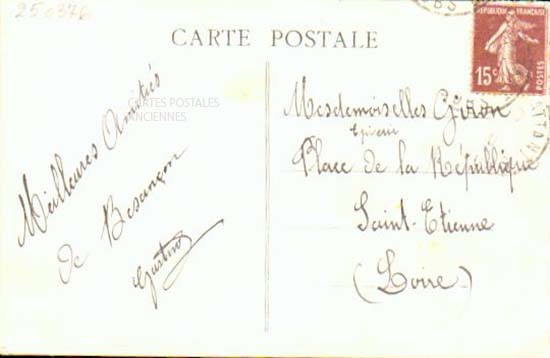 250376
CARTE POSTALE
REPUBLIQUE FRANÇAISE
15c
POSTES
CARTES POSTALES
ANCIENNES
Meilleures Amitiés
de Besançon
Mesdemoiselles Giron
Epicerie
Place de la République
Saint-Etienne
(Loire)